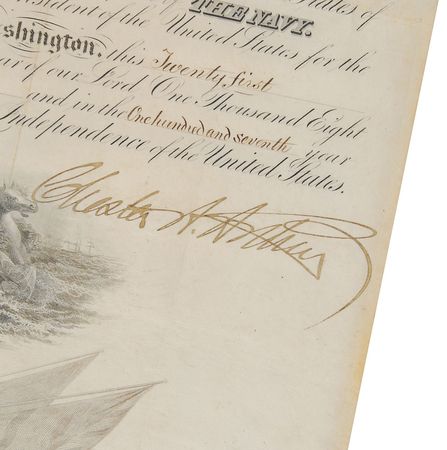 States of
THE NAVY.
President of the United States for the
Washington, this Twenty first
year of our Lord, One Thousand Eight
and in the One hundred and seventh year
Independence of the United States.
Chester A. Arthur